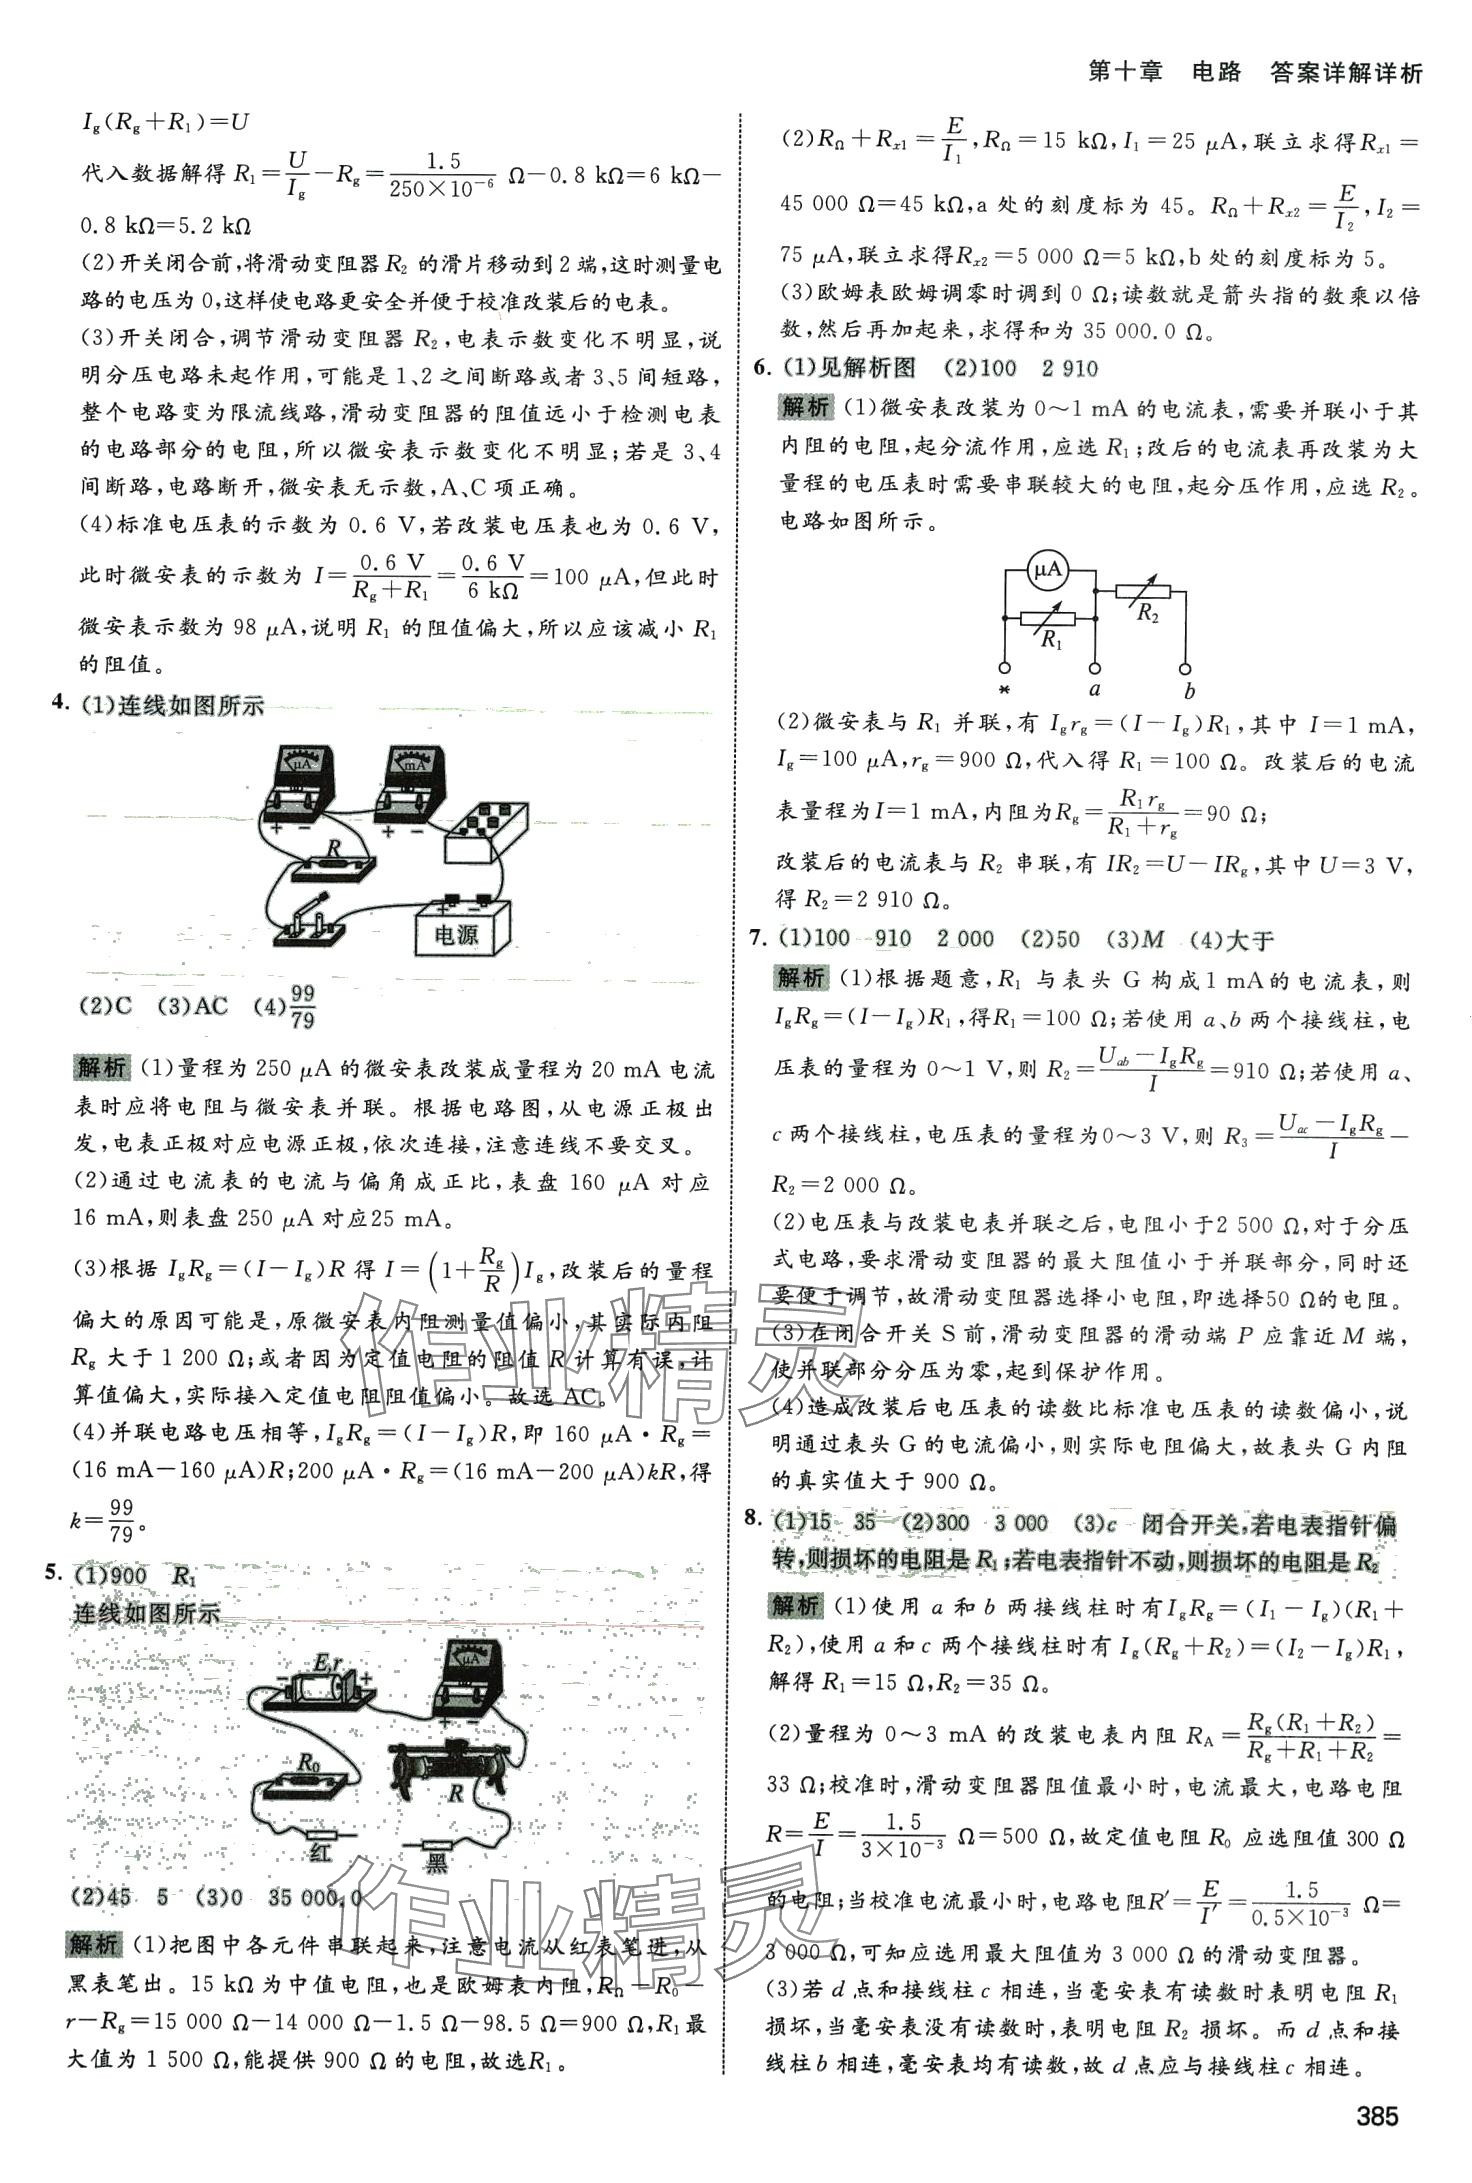 第十章 电路 答案详解详析
I_g(R_g+R_1)=U
代入数据解得 R_1=U/I_g-R_g=1.5/(250×10^-6) Ω-0.8 kΩ=6 kΩ-
0.8 kΩ=5.2 kΩ
(2)开关闭合前,将滑动变阻器 R_2 的滑片移动到2端,这时测量电
路的电压为0,这样使电路更安全并便于校准改装后的电表。
(3)开关闭合,调节滑动变阻器 R_2,电表示数变化不明显,说
明分压电路未起作用,可能是1、2之间断路或者3、5间短路,
整个电路变为限流线路,滑动变阻器的阻值远小于检测电表
的电路部分的电阻,所以微安表示数变化不明显;若是3、4
间断路,电路断开,微安表无示数,A、C项正确。
(4)标准电压表的示数为 0.6 V,若改装电压表也为 0.6 V,
此时微安表的示数为 I=0.6 V/(R_g+R_1)=0.6 V/6 kΩ=100 μA,但此时
微安表示数为 98 μA,说明 R_1 的阻值偏大,所以应该减小 R_1
的阻值。
4. (1)连线如图所示
μA
mA
- +
- +
R
+ -
电源
(2)C (3)AC (4)99/79
解析 (1)量程为 250 μA 的微安表改装成量程为 20 mA 电流
表时应将电阻与微安表并联。根据电路图,从电源正极出
发,电表正极对应电源正极,依次连接,注意连线不要交叉。
(2)通过电流表的电流与偏角成正比,表盘 160 μA 对应
16 mA,则表盘 250 μA 对应25 mA。
(3)根据 I_gR_g=(I-I_g)R 得 I=(1+R_g/R)I_g,改装后的量程
偏大的原因可能是,原微安表内阻测量值偏小,其实际内阻
R_g 大于 1 200 Ω;或者因为定值电阻的阻值 R 计算有误,计
算值偏大,实际接入定值电阻阻值偏小。故选 AC。
(4)并联电路电压相等,I_gR_g=(I-I_g)R,即 160 μA·R_g=
(16 mA-160 μA)R;200 μA·R_g=(16 mA-200 μA)kR,得
k=99/79。
5. (1)900 R_1
连线如图所示
E,r
- +
μA
- +
R_0
R
红
黑
(2)45 5 (3)0 35 000.0
解析 (1)把图中各元件串联起来,注意电流从红表笔进,从
黑表笔出。15 kΩ 为中值电阻,也是欧姆表内阻,R_Ω-R_0-
r-R_g=15 000 Ω-14 000 Ω-1.5 Ω-98.5 Ω=900 Ω,R_1最
大值为 1 500 Ω,能提供 900 Ω 的电阻,故选R_1。
(2)R_Ω+R_x1=E/I_1,R_Ω=15 kΩ,I_1=25 μA,联立求得 R_x1=
45 000 Ω=45 kΩ,a 处的刻度标为 45。R_Ω+R_x2=E/I_2,I_2=
75 μA,联立求得R_x2=5 000 Ω=5 kΩ,b 处的刻度标为 5。
(3)欧姆表欧姆调零时调到 0 Ω;读数就是箭头指的数乘以倍
数,然后再加起来,求得和为 35 000.0 Ω。
6. (1)见解析图 (2)100 2 910
解析 (1)微安表改装为 0~1 mA 的电流表,需要并联小于其
内阻的电阻,起分流作用,应选 R_1;改后的电流表再改装为大
量程的电压表时需要串联较大的电阻,起分压作用,应选 R_2。
电路如图所示。
μA
R_1
R_2
* a b
(2)微安表与 R_1 并联,有 I_gr_g=(I-I_g)R_1,其中 I=1 mA,
I_g=100 μA,r_g=900 Ω,代入得 R_1=100 Ω。改装后的电流
表量程为I=1 mA,内阻为R_g=R_1r_g/(R_1+r_g)=90 Ω;
改装后的电流表与 R_2 串联,有 IR_2=U-IR_g,其中 U=3 V,
得 R_2=2 910 Ω。
7. (1)100 910 2 000 (2)50 (3)M (4)大于
解析 (1)根据题意,R_1 与表头 G 构成1 mA的电流表,则
I_gR_g=(I-I_g)R_1,得R_1=100 Ω;若使用 a、b 两个接线柱,电
压表的量程为 0~1 V,则 R_2=(U_ab-I_gR_g)/I=910 Ω;若使用 a、
c 两个接线柱,电压表的量程为0~3 V,则 R_3=(U_ac-I_gR_g)/I-
R_2=2 000 Ω。
(2)电压表与改装电表并联之后,电阻小于2 500 Ω,对于分压
式电路,要求滑动变阻器的最大阻值小于并联部分,同时还
要便于调节,故滑动变阻器选择小电阻,即选择50 Ω的电阻。
(3)在闭合开关 S 前,滑动变阻器的滑动端 P 应靠近 M 端,
使并联部分分压为零,起到保护作用。
(4)造成改装后电压表的读数比标准电压表的读数偏小,说
明通过表头 G 的电流偏小,则实际电阻偏大,故表头 G 内阻
的真实值大于 900 Ω。
8. (1)15 35 (2)300 3 000 (3)c 闭合开关,若电表指针偏
转,则损坏的电阻是 R_1;若电表指针不动,则损坏的电阻是 R_2
解析 (1)使用 a 和 b 两接线柱时有I_gR_g=(I_1-I_g)(R_1+
R_2),使用 a 和 c 两个接线柱时有 I_g(R_g+R_2)=(I_2-I_g)R_1,
解得 R_1=15 Ω,R_2=35 Ω。
(2)量程为 0~3 mA 的改装电表内阻 R_A=R_g(R_1+R_2)/(R_g+R_1+R_2)=
33 Ω;校准时,滑动变阻器阻值最小时,电流最大,电路电阻
R=E/I=1.5/(3×10^-3) Ω=500 Ω,故定值电阻 R_0 应选阻值 300 Ω
的电阻;当校准电流最小时,电路电阻R′=E/I′=1.5/(0.5×10^-3) Ω=
3 000 Ω,可知应选用最大阻值为 3 000 Ω 的滑动变阻器。
(3)若 d 点和接线柱 c 相连,当毫安表有读数时表明电阻 R_1
损坏,当毫安表没有读数时,表明电阻 R_2 损坏。而 d 点和接
线柱 b 相连,毫安表均有读数,故 d 点应与接线柱 c 相连。
385
作业精灵
作业精灵